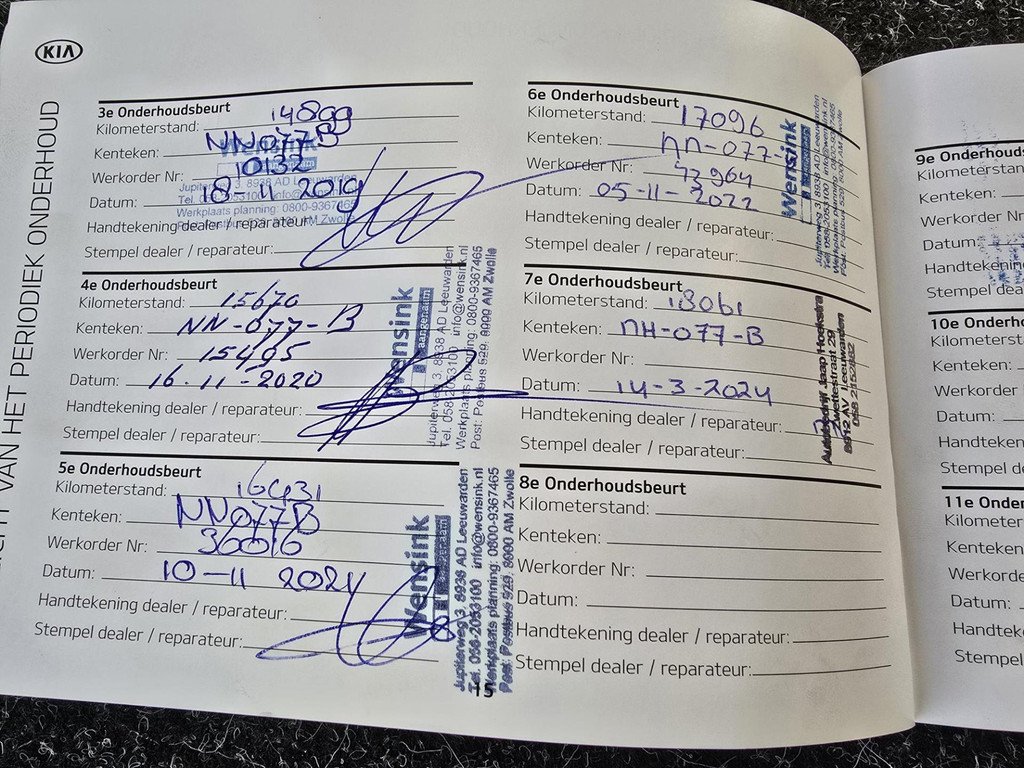 KIA
VAN HET PERIODIEK ONDERHOUD
3e Onderhoudsbeurt
Kilometerstand: 14899
Kenteken: NN077B
Werkorder Nr: 10132
Datum: 18 11 2019
Handtekening dealer / reparateur:
Stempel dealer / reparateur:
Wensink
Jupiterweg 3, 8938 AD Leeuwarden
Tel. 058-2053100 info@wensink.nl
Werkplaats planning: 0800-9367465
Post: Postbus 529, 8000 AM Zwolle
4e Onderhoudsbeurt
Kilometerstand: 15670
Kenteken: NN-077-B
Werkorder Nr: 15495
Datum: 16-11-2020
Handtekening dealer / reparateur:
Stempel dealer / reparateur:
Wensink
aangenaam
Jupiterweg 3, 8938 AD Leeuwarden
Tel. 058-2053100 info@wensink.nl
Werkplaats planning: 0800-9367465
Post: Postbus 529, 8000 AM Zwolle
5e Onderhoudsbeurt
Kilometerstand: 16431
Kenteken: NN077B
Werkorder Nr: 30016
Datum: 10-11 2021
Handtekening dealer / reparateur:
Stempel dealer / reparateur:
Wensink
Jupiterweg 3, 8938 AD Leeuwarden
Tel. 058-2053100 info@wensink.nl
Werkplaats planning: 0800-9367465
Post: Postbus 529, 8000 AM Zwolle
15
6e Onderhoudsbeurt
Kilometerstand: 17096
Kenteken: NN-077-
Werkorder Nr: 43964
Datum: 05-11-2022
Handtekening dealer / reparateur:
Stempel dealer / reparateur:
Wensink
Jupiterweg 3, 8938 AD Leeuwarden
Tel. 058-2053100 info@wensink.nl
Werkplaats planning: 0800-9367465
Post: Postbus 529, 8000 AM Zwolle
7e Onderhoudsbeurt
Kilometerstand: 18061
Kenteken: NH-077-B
Werkorder Nr:
Datum: 14-3-2024
Handtekening dealer / reparateur:
Stempel dealer / reparateur:
Autobedrijf Jaap Hoekstra
Zwettestraat 29
8912 AV Leeuwarden
058 2152882
8e Onderhoudsbeurt
Kilometerstand:
Kenteken:
Werkorder Nr:
Datum:
Handtekening dealer / reparateur:
Stempel dealer / reparateur:
9e Onderhouds
Kilometerstan
Kenteken:
Werkorder Nr
Datum:
Handtekening
Stempel dea
10e Onderho
Kilometerst
Kenteken:
Werkorder
Datum:
Handteken
Stempel d
11e Onder
Kilometer
Kenteken
Werkord
Datum:
Handte
Stempe